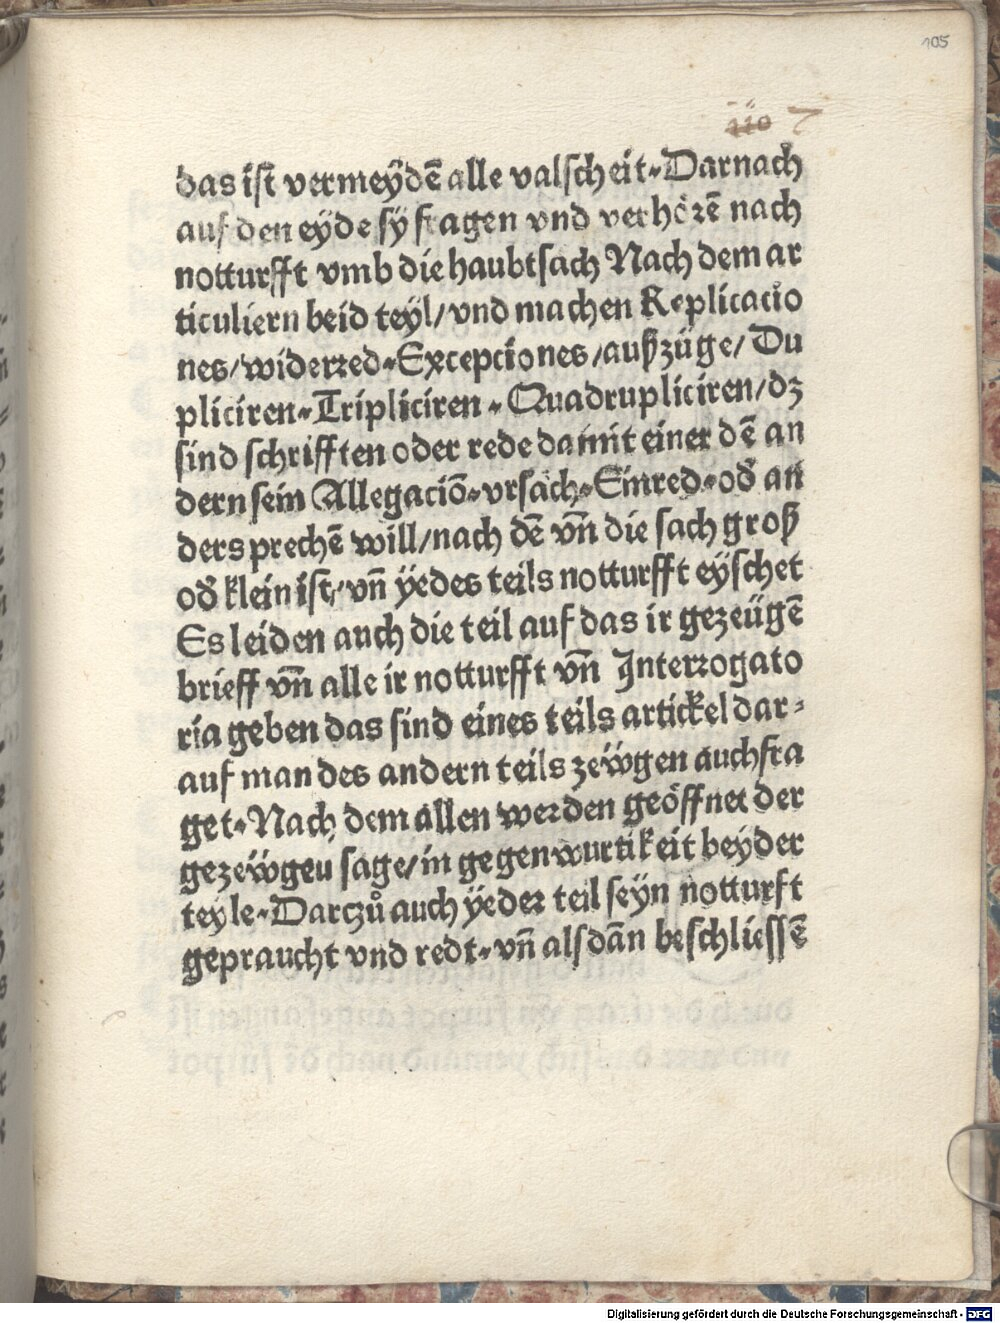 105
110 7
das ist vermeydē alle valscheit. Darnach
auf den eyde sÿ fragen vnd verhörē nach
notturfft vmb die haubtsach Nach dem ar
ticuliern beid teyl/vnd machen Replicacio
nes/widerred. Excepciones/außzüge/Du
pliciren. Tripliciren. Quadrupliciren/dz
sind schrifften oder rede damit einer dē an
dern sein Allegaciō. vrsach. Einred. od̄ an
ders prechē will/nach dē vn̄ die sach groß
od̄ klein ist/vn̄ ÿedes teils notturfft eyschet
Es leiden auch die teil auf das ir gezeügē
brieff vn̄ alle ir notturfft vn̄ Interrogato
ria geben das sind eines teils artickel dar⸗
auf man des andern teils zeẅgen auch fra
get. Nach dem allen werden geöffnet der
gezeẅgeu sage/in gegenwurtikeit beyder
teyle. Darczů auch ÿeder teil seyn notturft
gepraucht vnd redt. vn̄ alsdān beschliessē
Digitalisierung gefördert durch die Deutsche Forschungsgemeinschaft - DFG